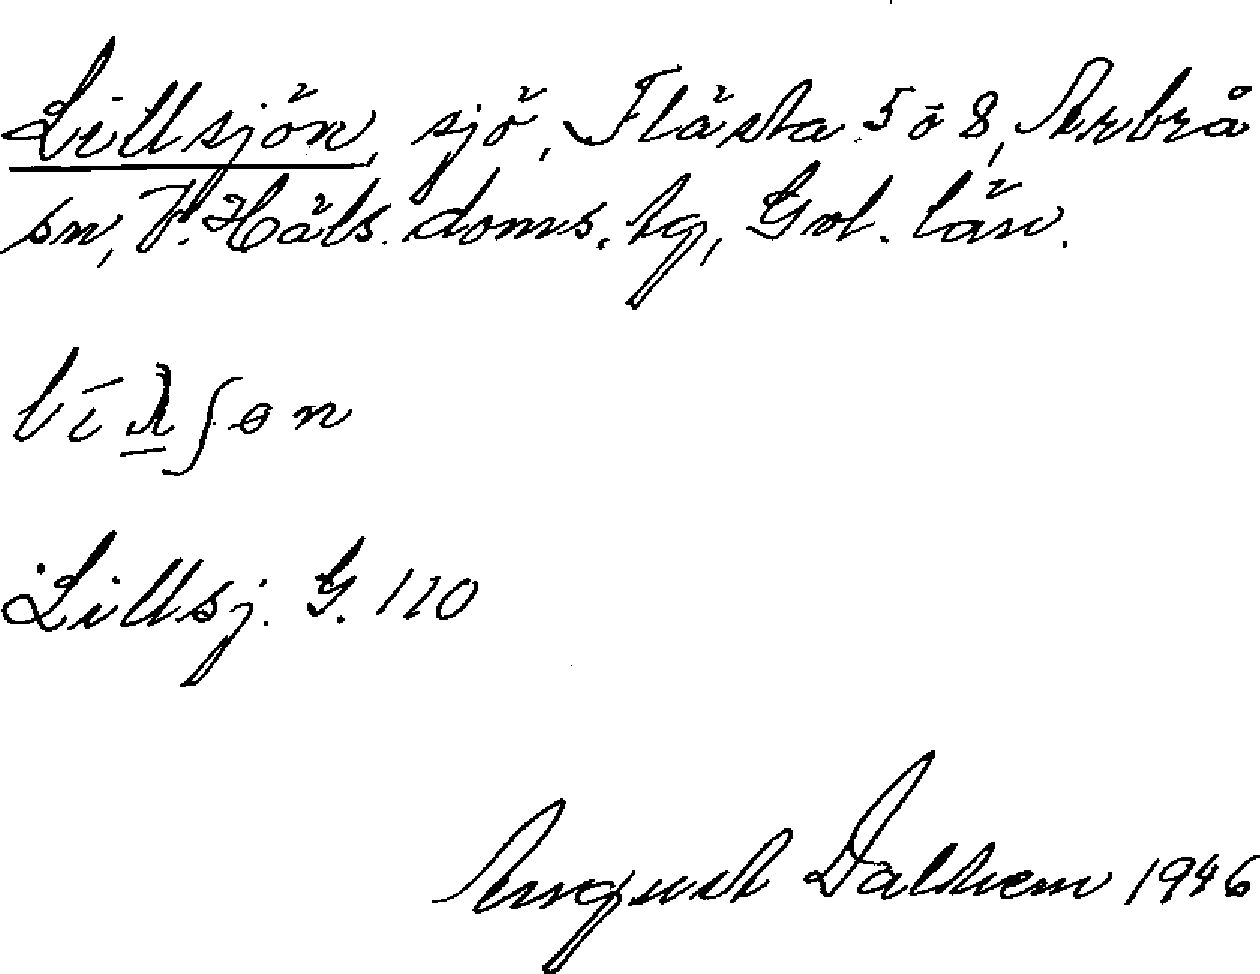 Lillsjön, sjö, Flästa 5 o 8, Arbrå
sn, V. Häls. doms. tg, Gvl. län.
Lillsj. G. 110
August Dalhem 1946